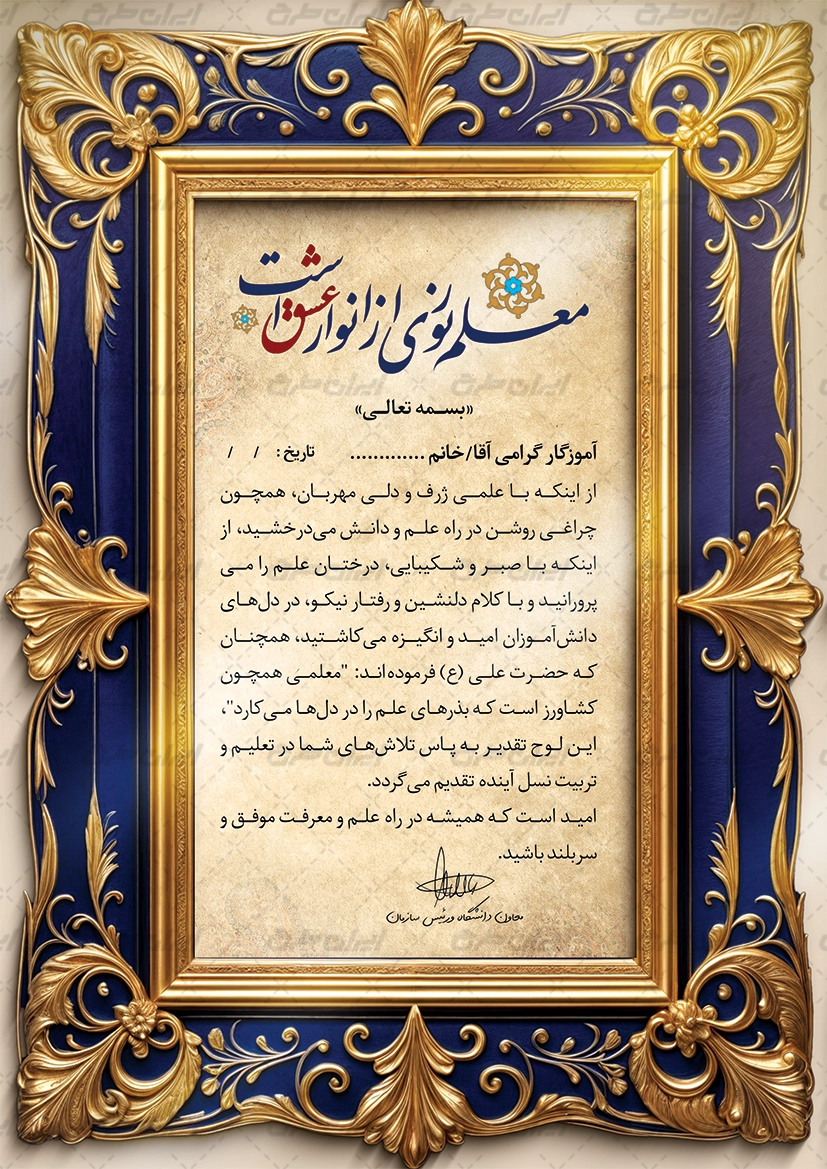 معلم نوری از انوار عشق است
«بسمه تعالی»
آموزگار گرامی آقا/خانم ............. تاریخ: / /
از اینکه با علمی ژرف و دلی مهربان، همچون
چراغی روشن در راه علم و دانش می‌درخشید، از
اینکه با صبر و شکیبایی، درختان علم را می
پرورانید و با کلام دلنشین و رفتار نیکو، در دل‌های
دانش‌آموزان امید و انگیزه می‌کاشتید، همچنان
که حضرت علی (ع) فرموده‌اند: "معلمی همچون
کشاورز است که بذرهای علم را در دل‌ها می‌کارد"،
این لوح تقدیر به پاس تلاش‌های شما در تعلیم و
تربیت نسل آینده تقدیم می‌گردد.
امید است که همیشه در راه علم و معرفت موفق و
سربلند باشید.
معاون دانشگاه و رئیس سازمان
ایران طرح